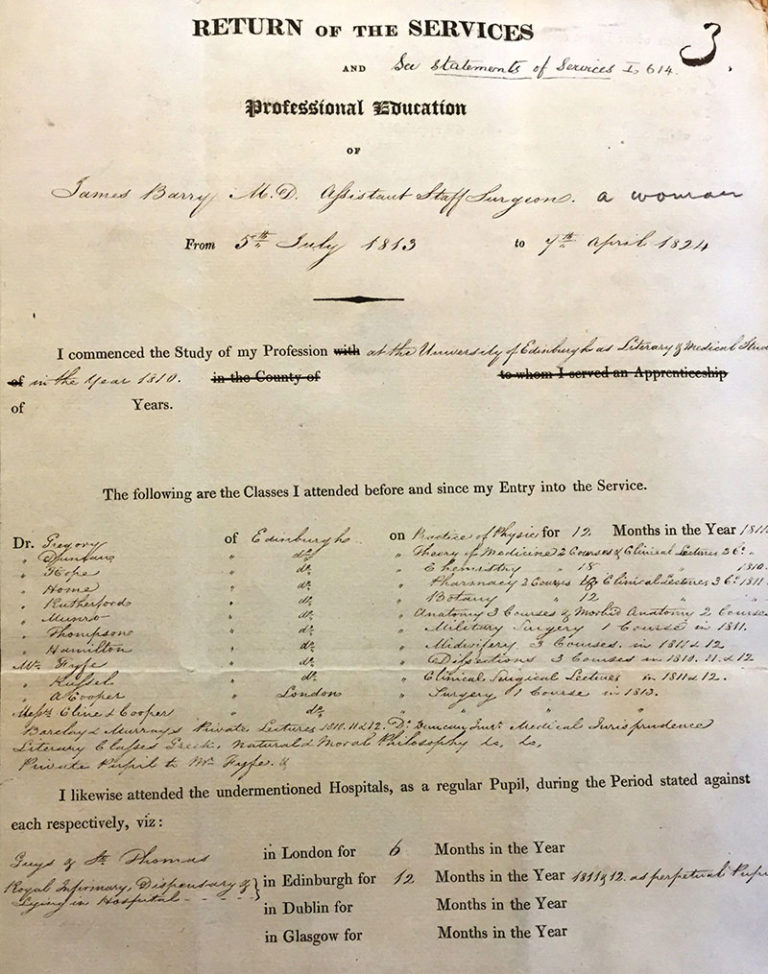 RETURN OF THE SERVICES
3.
AND See Statements of Services I, 614.
Professional Education
OF
James Barry M.D. Assistant Staff Surgeon. a woman
From 5th July 1813 to 7th April 1824
I commenced the Study of my Profession with at the University of Edinburgh as Literary & Medical Stud
of in the Year 1810. in the County of to whom I served an Apprenticeship
of Years.
The following are the Classes I attended before and since my Entry into the Service.
Dr. Gregory of Edinburgh on Practice of Physic for 12 Months in the Year 1811
" Duncan " do. " Theory of Medicine 2 Courses & Clinical Lectures 2
" Hope " do. " Chemistry " 18 " 1810
" Home " do. " Pharmacy 2 Courses & Clinical Lectures 3 1811
" Rutherford " do. " Botany " 12 " "
" Munro " do. " Anatomy 3 Courses & Morbid Anatomy 2 Course
" Thompson " do. " Military Surgery 1 Course in 1811.
" Hamilton " do. " Midwifery 3 Courses in 1811 & 12
Mr. Fyfe " do. " Dissections 3 Courses in 1810. 11 & 12
" Russel " do. " Clinical Surgical Lectures in 1811 & 12.
" A Cooper " London " Surgery 1 Course in 1813.
Messrs Cline & Cooper " do. " " "
Barclay & Murrays Private Lectures 1810. 11 & 12. Dr. Duncan Junr. Medical Jurisprudence
Literary Classes Greek, Natural & Moral Philosophy &c, &c,
Private Pupil to Mr. Fyfe.
I likewise attended the undermentioned Hospitals, as a regular Pupil, during the Period stated against
each respectively, viz:
Guys & St. Thomas in London for 6 Months in the Year
Royal Infirmary, Dispensary & Lying in Hospital in Edinburgh for 12 Months in the Year 1811 & 12. as perpetual Pup
in Dublin for Months in the Year
in Glasgow for Months in the Year